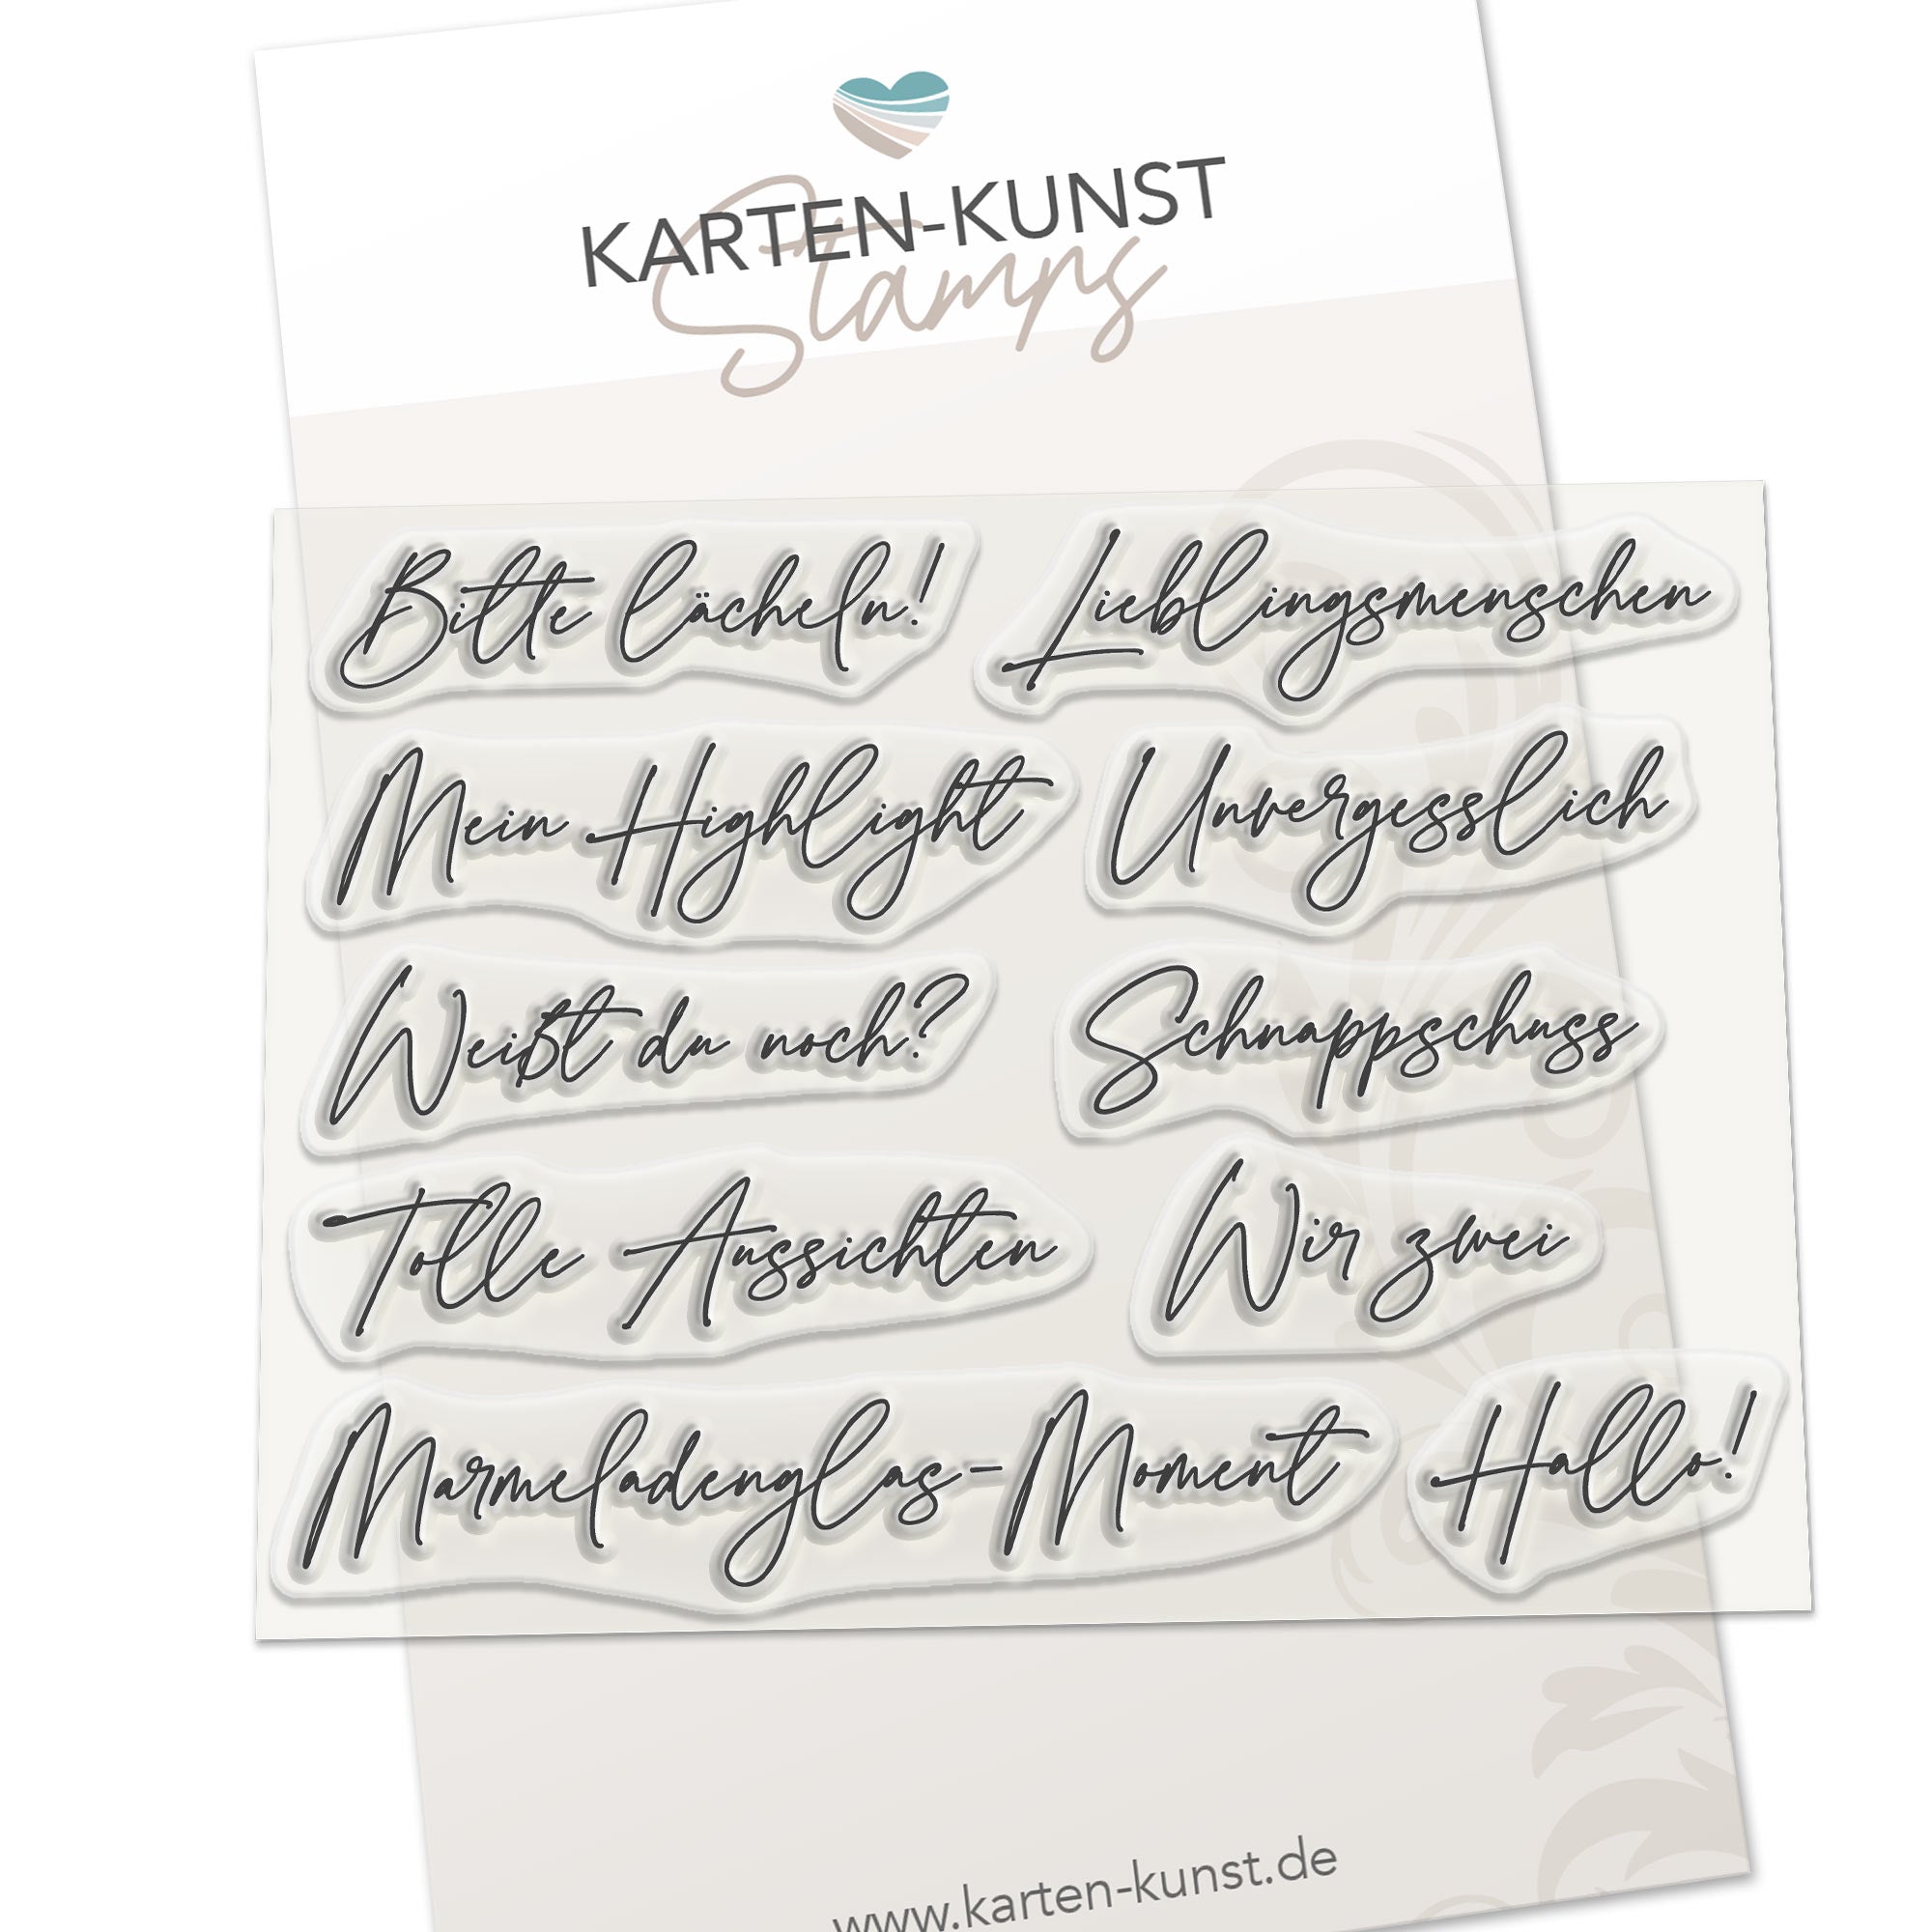 KARTEN-KUNST
Stamps
Bitte lächeln! Lieblingsmenschen
Mein Highlight Unvergesslich
Weißt du noch? Schnappschuss
Tolle Aussichten Wir zwei
Marmeladenglas-Moment Hallo!
www.karten-kunst.de